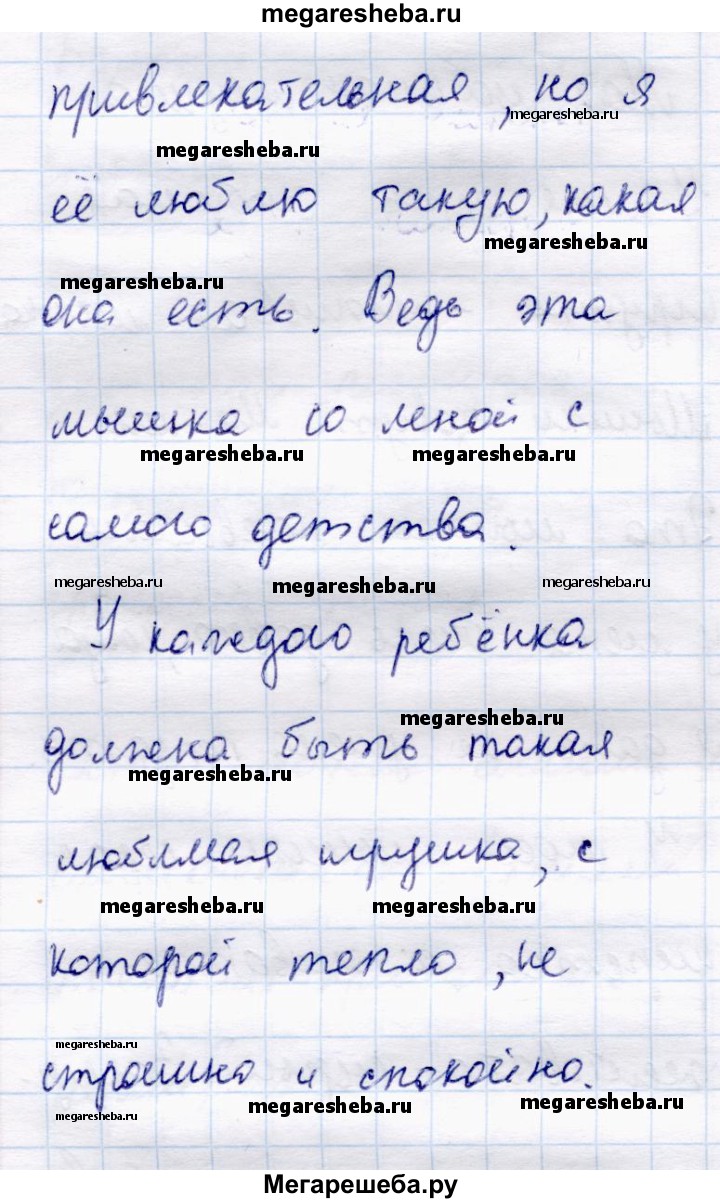 megaresheba.ru
привлекательная, но я
megaresheba.ru
megaresheba.ru
её люблю такую, какая
megaresheba.ru
megaresheba.ru
она есть. Ведь эта
мышка со мной с
megaresheba.ru megaresheba.ru
самого детства.
megaresheba.ru megaresheba.ru megaresheba.ru
У каждого ребёнка
megaresheba.ru
должна быть такая
megaresheba.ru
любимая игрушка, с
megaresheba.ru megaresheba.ru
которой тепло, не
megaresheba.ru
страшно и спокойно.
megaresheba.ru megaresheba.ru megaresheba.ru
Мегарешеба.ру